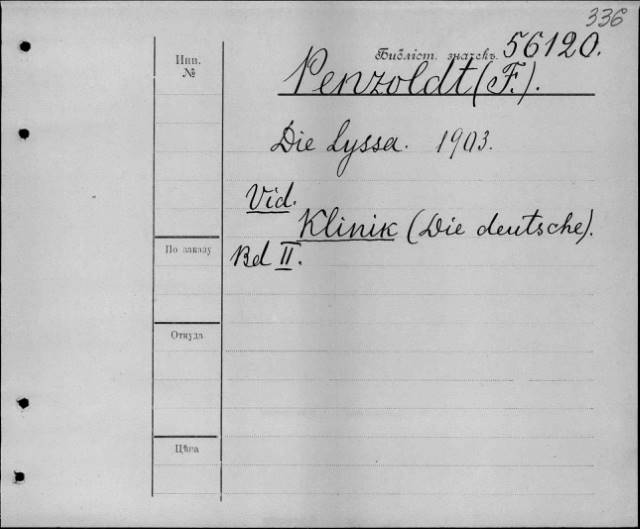 336
Инв.
№
Библіот. значекъ. 56120.
Penzoldt (F.).
Die Lyssa. 1903.
Vid.
Klinik (Die deutsche).
По заказу
Bd II.
Откуда
Цѣна